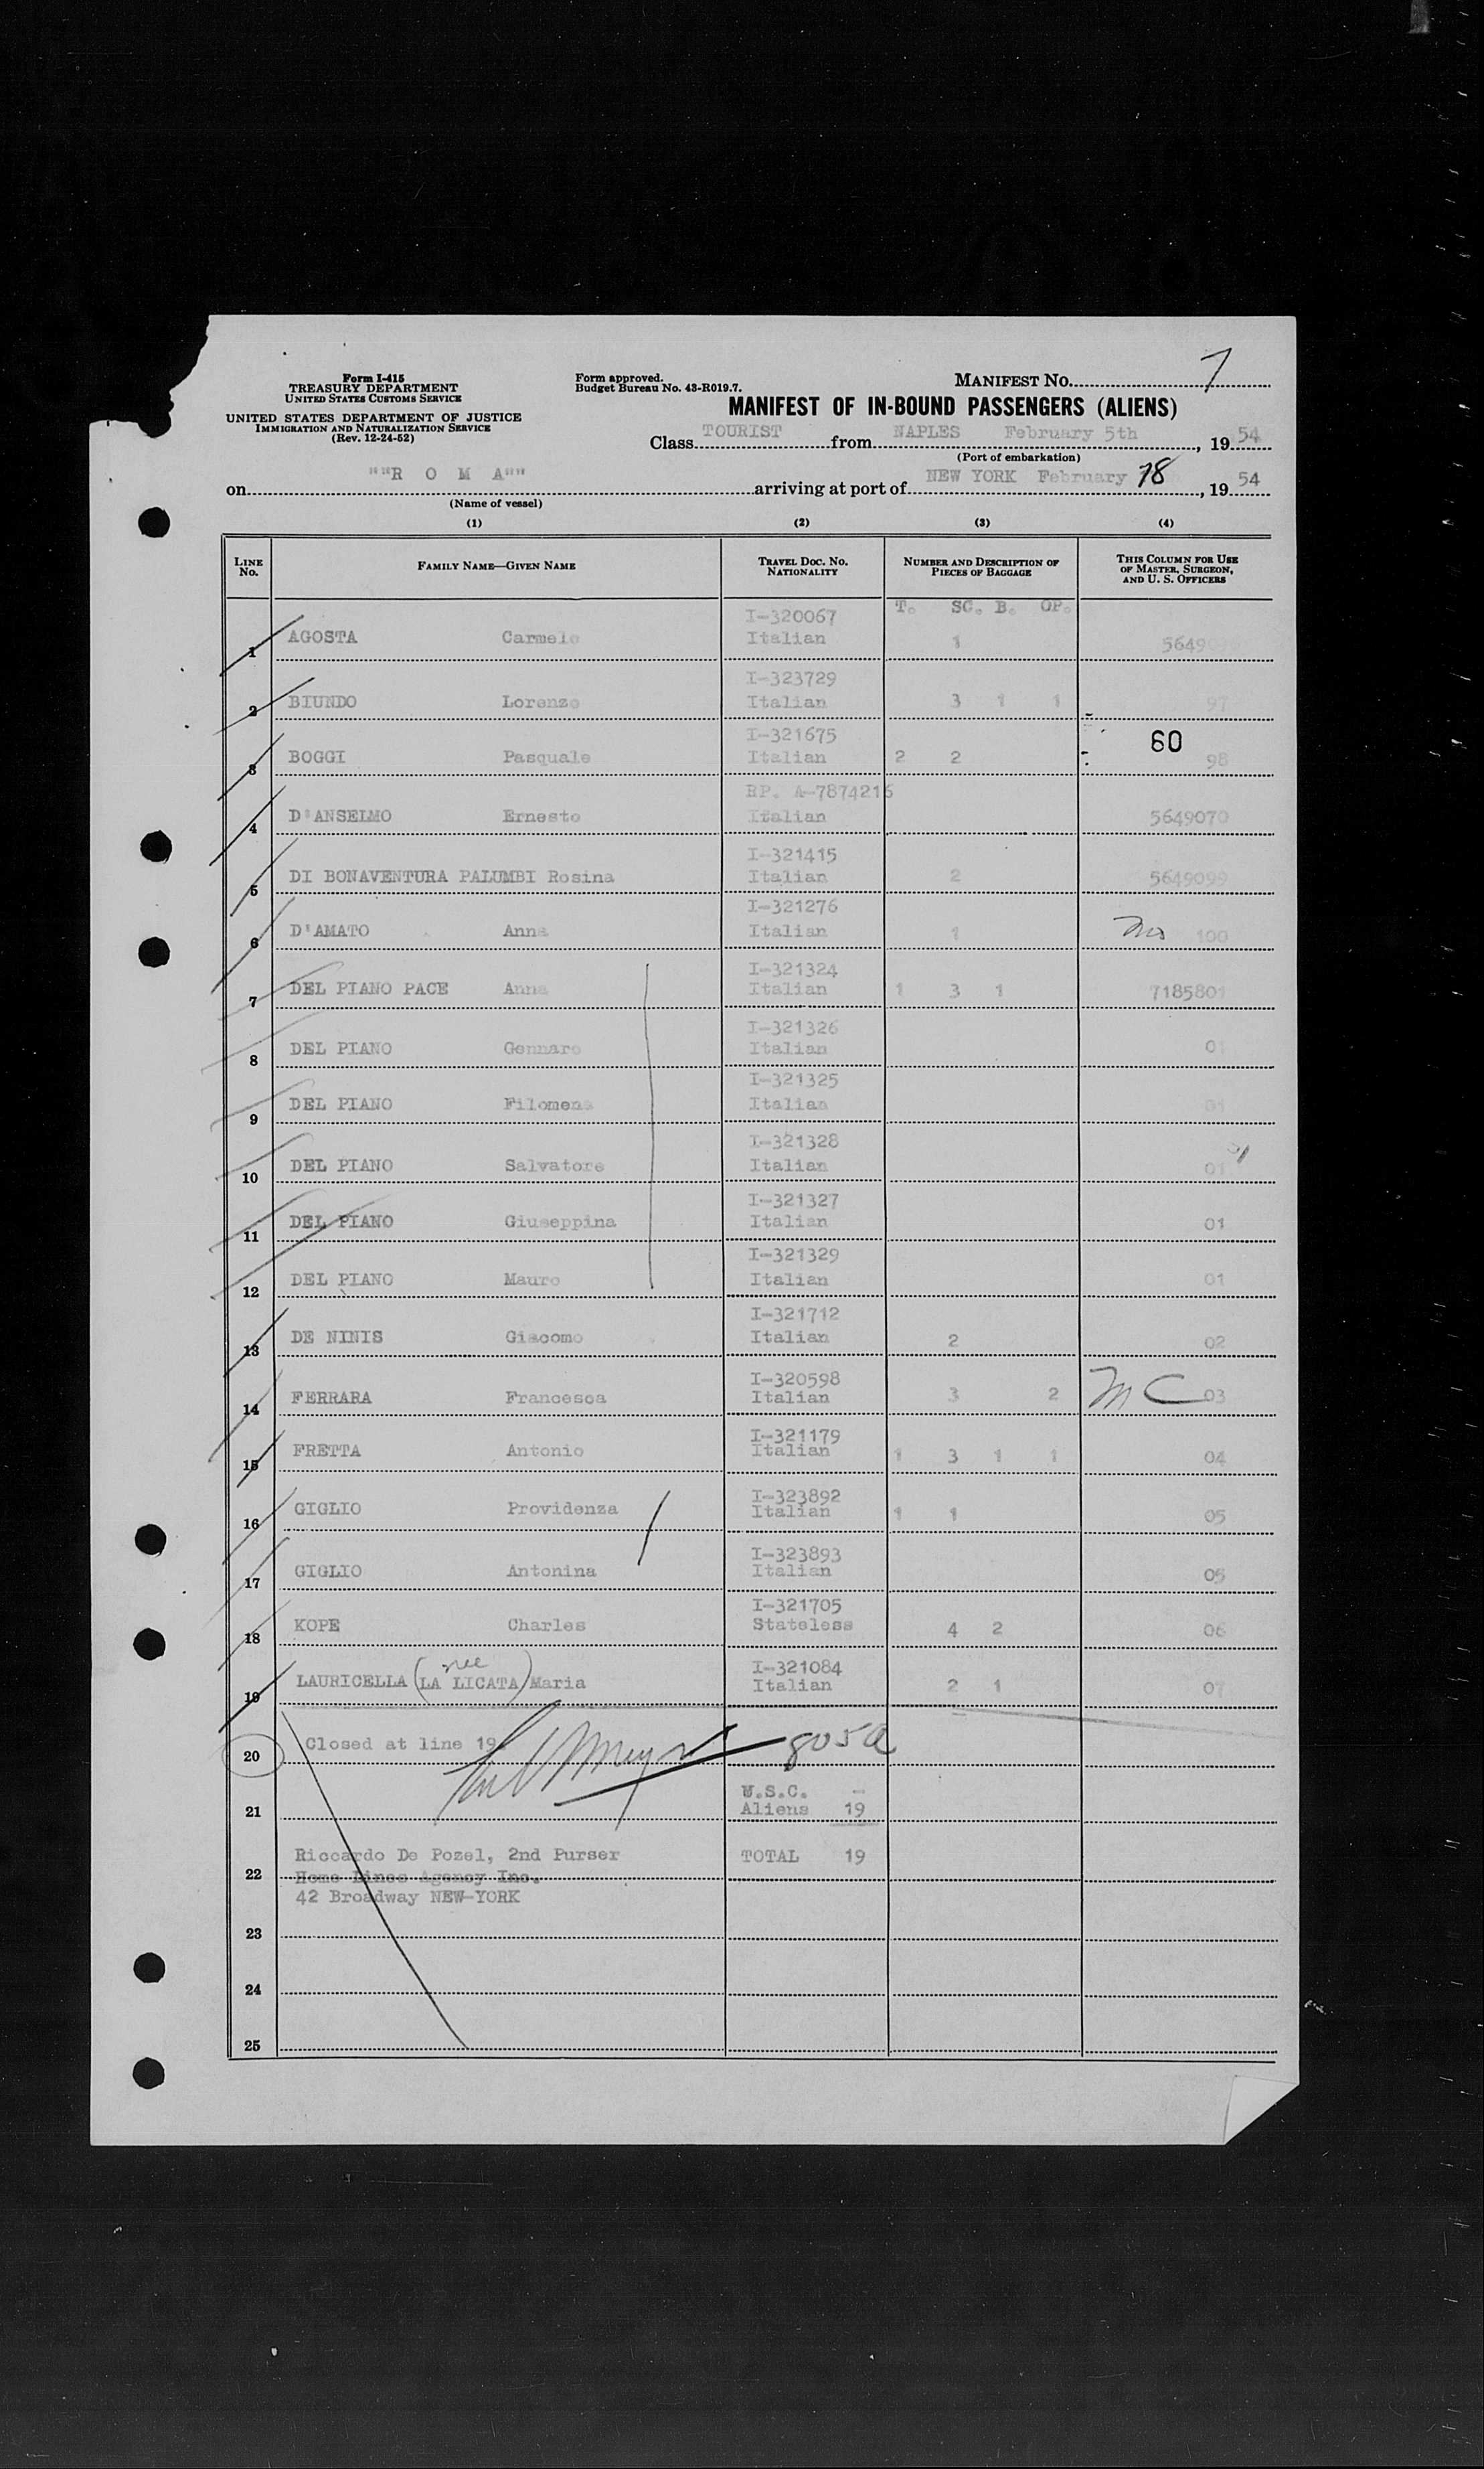 Form I-415
TREASURY DEPARTMENT
UNITED STATES CUSTOMS SERVICE
UNITED STATES DEPARTMENT OF JUSTICE
IMMIGRATION AND NATURALIZATION SERVICE
(Rev. 12-24-52)
Form approved.
Budget Bureau No. 43-R019.7.
MANIFEST NO. 7
MANIFEST OF IN-BOUND PASSENGERS (ALIENS)
Class TOURIST from NAPLES February 5th, 1954
(Port of embarkation)
on ""R O M A"" arriving at port of NEW YORK February 18, 1954
(Name of vessel)
(1) (2) (3) (4)
LINE NO. FAMILY NAME—GIVEN NAME TRAVEL DOC. NO. NATIONALITY NUMBER AND DESCRIPTION OF PIECES OF BAGGAGE THIS COLUMN FOR USE OF MASTER, SURGEON, AND U. S. OFFICERS
T. SC. B. OP.
1 AGOSTA Carmelo I-320067 Italian 1 5649
2 BIUNDO Lorenzo I-323729 Italian 3 1 1 97
60
3 BOGGI Pasquale I-321675 Italian 2 2 98
4 D'ANSELMO Ernesto RP. A-7874216 Italian 5649070
5 DI BONAVENTURA PALUMBI Rosina I-321415 Italian 2 5649099
6 D'AMATO Anna I-321276 Italian 1 100
7 DEL PIANO PACE Anna I-321324 Italian 1 3 1 7185801
8 DEL PIANO Gennaro I-321326 Italian 01
9 DEL PIANO Filomena I-321325 Italian 01
10 DEL PIANO Salvatore I-321328 Italian 01
11 DEL PIANO Giuseppina I-321327 Italian 01
12 DEL PIANO Mauro I-321329 Italian 01
13 DE NINIS Giacomo I-321712 Italian 2 02
14 FERRARA Francesca I-320598 Italian 3 2 MC 03
15 FRETTA Antonio I-321179 Italian 1 3 1 1 04
16 GIGLIO Providenza I-323892 Italian 1 1 05
17 GIGLIO Antonina I-323893 Italian 05
18 KOPE Charles I-321705 Stateless 4 2 06
19 LAURICELLA (nee LA LICATA) Maria I-321084 Italian 2 1 07
20 Closed at line 19
21 U.S.C. -
Aliens 19
22 Riccardo De Pozel, 2nd Purser TOTAL 19
Home Lines Agency Inc.
42 Broadway NEW-YORK
23
24
25